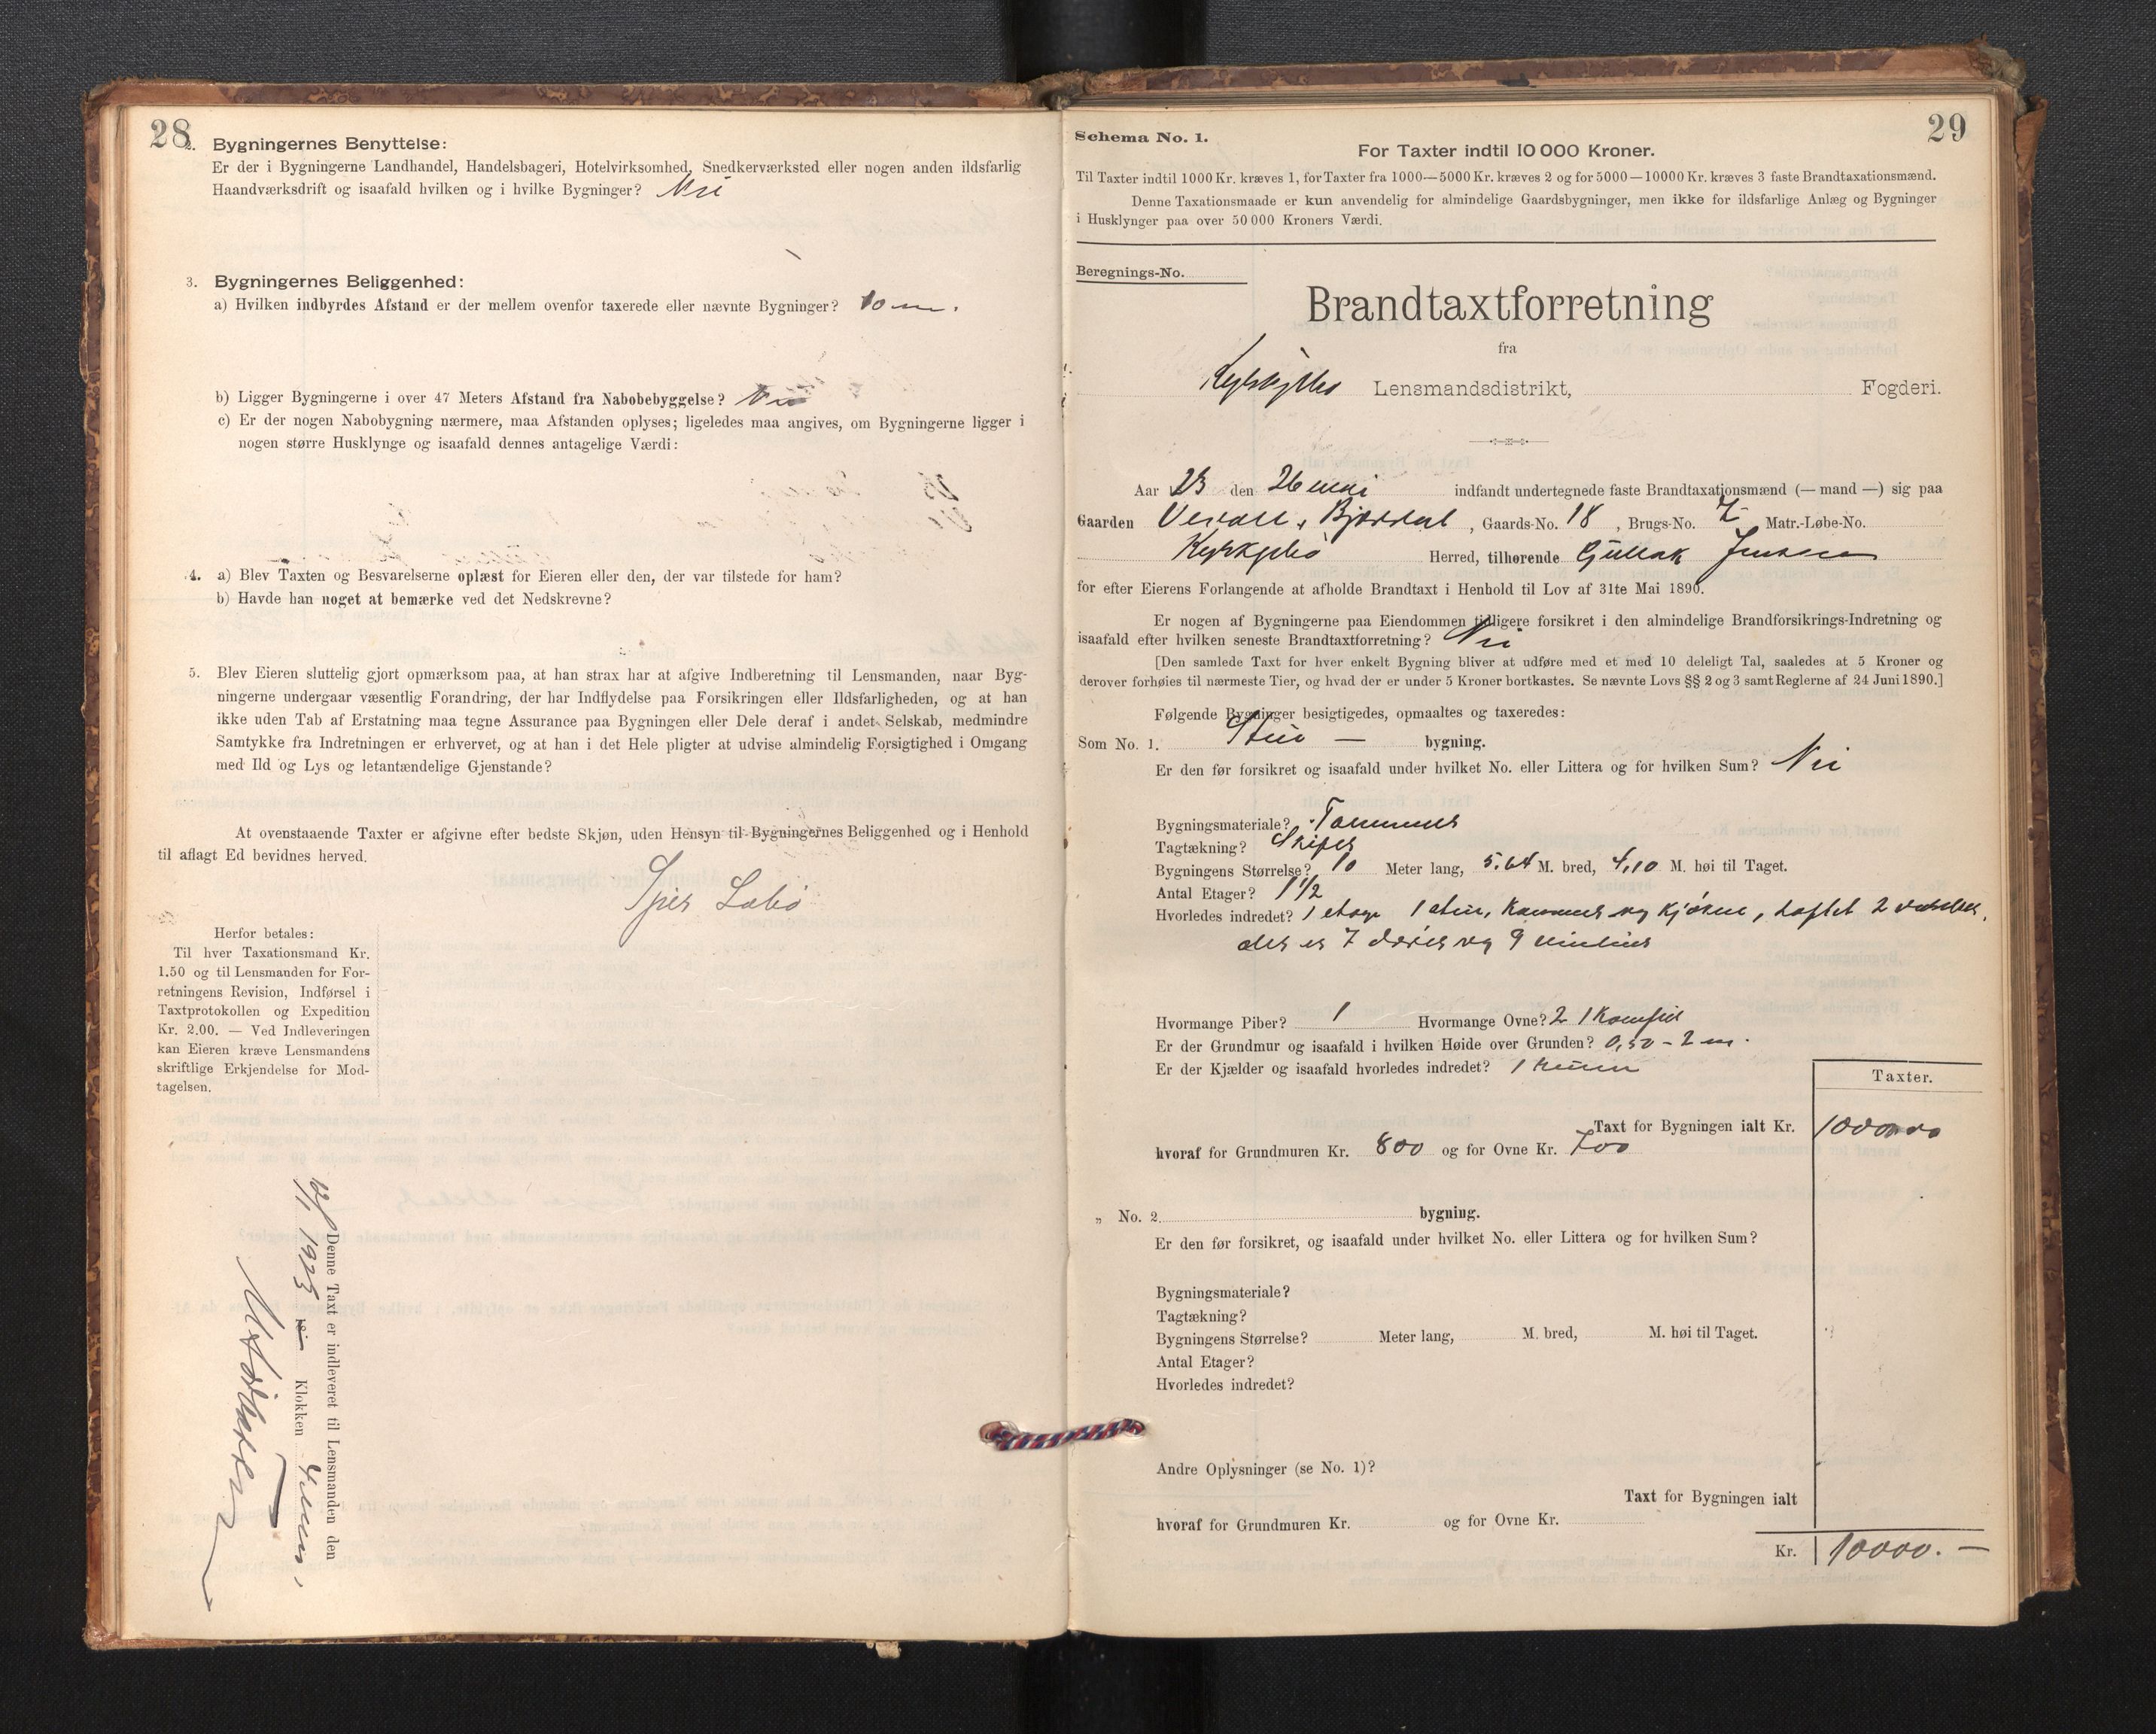 28
2. Bygningernes Benyttelse:
Er der i Bygningerne Landhandel, Handelsbageri, Hotelvirksomhed, Snedkerværksted eller nogen anden ildsfarlig
Haandværksdrift og isaafald hvilken og i hvilke Bygninger? Nei
3. Bygningernes Beliggenhed:
a) Hvilken indbyrdes Afstand er der mellem ovenfor taxerede eller nævnte Bygninger? 10 m.
b) Ligger Bygningerne i over 47 Meters Afstand fra Nabobebyggelse? Nei
c) Er der nogen Nabobygning nærmere, maa Afstanden oplyses; ligeledes maa angives, om Bygningerne ligger i
nogen større Husklynge og isaafald dennes antagelige Værdi:
4. a) Blev Taxten og Besvarelserne oplæst for Eieren eller den, der var tilstede for ham?
b) Havde han noget at bemærke ved det Nedskrevne?
5. Blev Eieren sluttelig gjort opmærksom paa, at han strax har at afgive Indberetning til Lensmanden, naar Byg-
ningerne undergaar væsentlig Forandring, der har Indflydelse paa Forsikringen eller Ildsfarligheden, og at han
ikke uden Tab af Erstatning maa tegne Assurance paa Bygningen eller Dele deraf i andet Selskab, medmindre
Samtykke fra Indretningen er erhvervet, og at han i det Hele pligter at udvise almindelig Forsigtighed i Omgang
med Ild og Lys og letantændelige Gjenstande?
At ovenstaaende Taxter er afgivne efter bedste Skjøn, uden Hensyn til Bygningernes Beliggenhed og i Henhold
til aflagt Ed bevidnes herved.
Herfor betales:
Til hver Taxationsmand Kr.
1.50 og til Lensmanden for For-
retningens Revision, Indførsel i
Taxtprotokollen og Expedition
Kr. 2.00. — Ved Indleveringen
kan Eieren kræve Lensmandens
skriftlige Erkjendelse for Mod-
tagelsen.
Denne Taxt er indleveret til Lensmanden den
1923 Klokken
29
Schema No. 1.
For Taxter indtil 10 000 Kroner.
Til Taxter indtil 1000 Kr. kræves 1, for Taxter fra 1000—5000 Kr. kræves 2 og for 5000—10000 Kr. kræves 3 faste Brandtaxationsmænd.
Denne Taxationsmaade er kun anvendelig for almindelige Gaardsbygninger, men ikke for ildsfarlige Anlæg og Bygninger
i Husklynger paa over 50 000 Kroners Værdi.
Beregnings-No.
Brandtaxtforretning
fra
Kyrkjebø Lensmandsdistrikt, Fogderi.
Aar 23 den 26 mai indfandt undertegnede faste Brandtaxationsmænd (— mand —) sig paa
Gaarden , Gaards-No. 18 , Brugs-No. 7 Matr.-Løbe-No.
Kyrkjebø Herred, tilhørende Gullak Jensen
for efter Eierens Forlangende at afholde Brandtaxt i Henhold til Lov af 31te Mai 1890.
Er nogen af Bygningerne paa Eiendommen tidligere forsikret i den almindelige Brandforsikrings-Indretning og
isaafald efter hvilken seneste Brandtaxtforretning? Nei
[Den samlede Taxt for hver enkelt Bygning bliver at udføre med et med 10 deleligt Tal, saaledes at 5 Kroner og
derover forhøies til nærmeste Tier, og hvad der er under 5 Kroner bortkastes. Se nævnte Lovs §§ 2 og 3 samt Reglerne af 24 Juni 1890.]
Følgende Bygninger besigtigedes, opmaaltes og taxeredes:
Som No. 1. Stue — bygning.
Er den før forsikret og isaafald under hvilket No. eller Littera og for hvilken Sum? Nei
Bygningsmateriale? Tømmer
Tagtækning? Skifer
Bygningens Størrelse? 10 Meter lang, 5.64 M. bred, 4,10 M. høi til Taget.
Antal Etager? 1 1/2
Hvorledes indredet? 1 etage 1 stue, kammer og kjøken, loftet 2 værelser,
der er 7 dører og 9 vinduer
Hvormange Piber? 1 Hvormange Ovne? 2 1 komfur
Er der Grundmur og isaafald i hvilken Høide over Grunden? 0,50 - 2 m.
Er der Kjælder og isaafald hvorledes indredet? 1
Taxter.
Taxt for Bygningen ialt Kr.
hvoraf for Grundmuren Kr. 800 og for Ovne Kr. 700
„ No. 2 bygning.
Er den før forsikret, og isaafald under hvilket No. eller Littera og for hvilken Sum?
Bygningsmateriale?
Tagtækning?
Bygningens Størrelse? Meter lang, M. bred, M. høi til Taget.
Antal Etager?
Hvorledes indredet?
Andre Oplysninger (se No. 1)?
Taxt for Bygningen ialt
hvoraf for Grundmuren Kr. og for Ovne Kr.
Kr. 10000. —